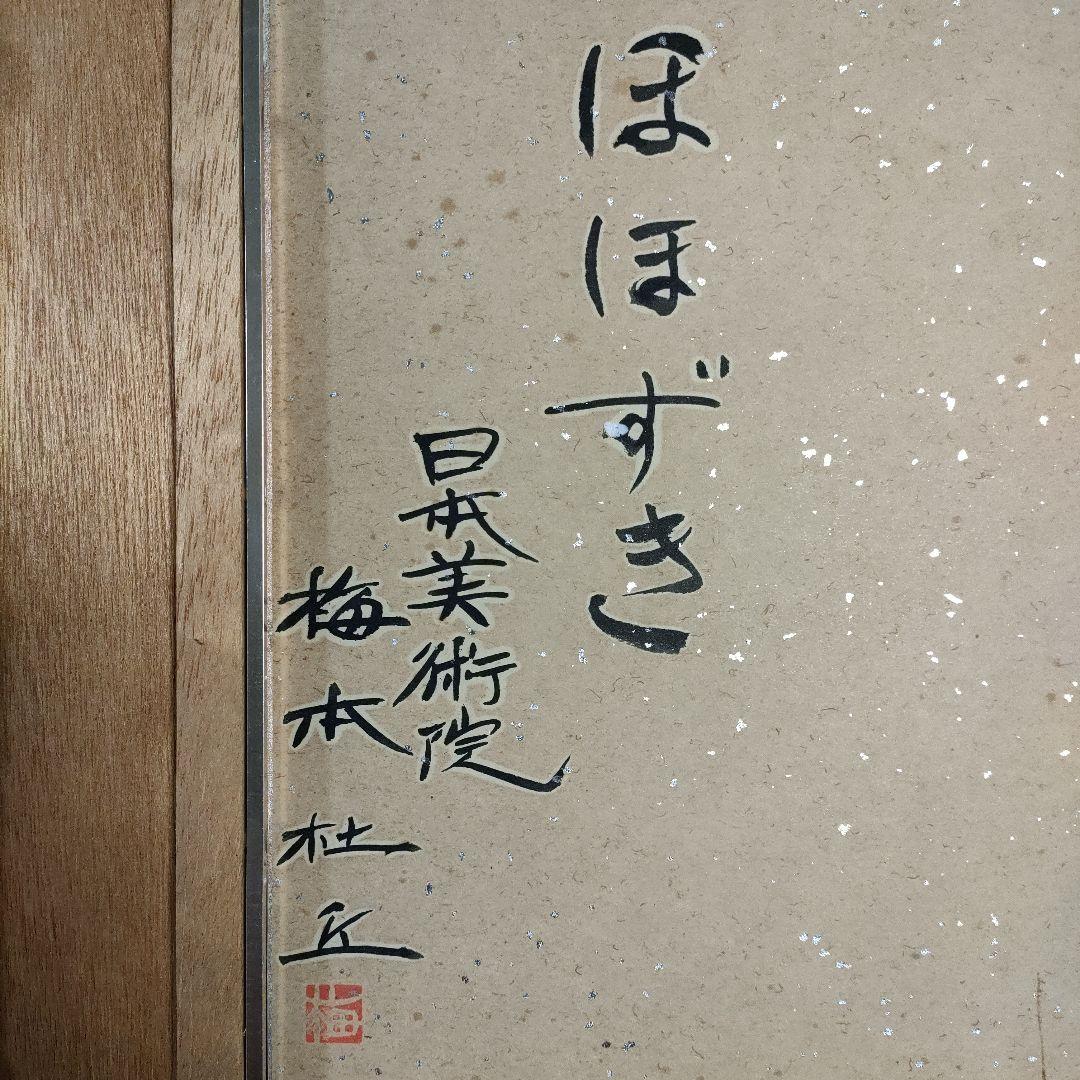 ほほずき
日本美術院
梅本杜丘
梅